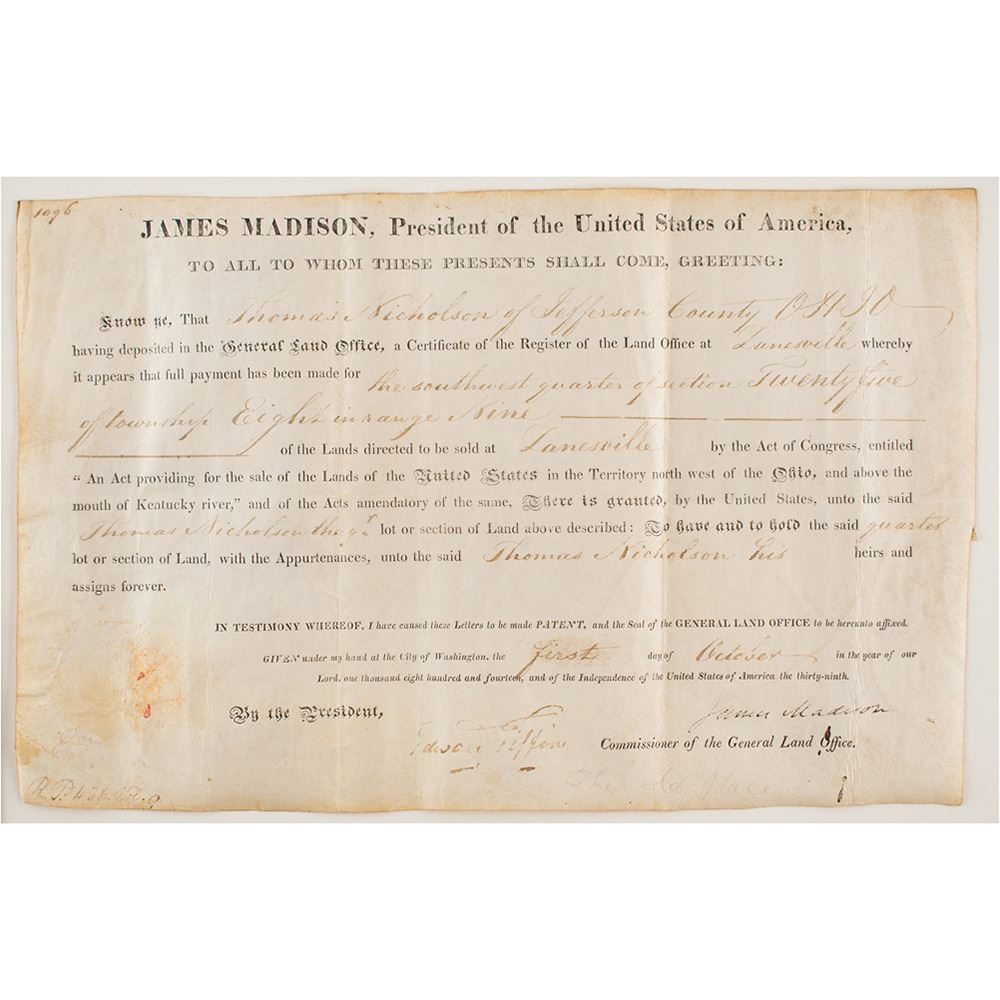 1096
JAMES MADISON, President of the United States of America,
TO ALL TO WHOM THESE PRESENTS SHALL COME, GREETING:
Know ye, That Thomas Nicholson of Jefferson County OHIO
having deposited in the General Land Office, a Certificate of the Register of the Land Office at Zanesville whereby
it appears that full payment has been made for the southwest quarter of section Twenty five
of township Eight in range Nine
of the Lands directed to be sold at Zanesville by the Act of Congress, entitled
“ An Act providing for the sale of the Lands of the United States in the Territory north west of the Ohio, and above the
mouth of Kentucky river,” and of the Acts amendatory of the same, There is granted, by the United States, unto the said
Thomas Nicholson the qr. lot or section of Land above described: To have and to hold the said quarter
lot or section of Land, with the Appurtenances, unto the said Thomas Nicholson his heirs and
assigns forever.
IN TESTIMONY WHEREOF, I have caused these Letters to be made PATENT, and the Seal of the GENERAL LAND OFFICE to be hereunto affixed.
GIVEN under my hand at the City of Washington, the first day of October in the year of our
Lord, one thousand eight hundred and fourteen, and of the Independence of the United States of America the thirty-ninth.
By the President, James Madison
Edward Tiffin Commissioner of the General Land Office.
The old place